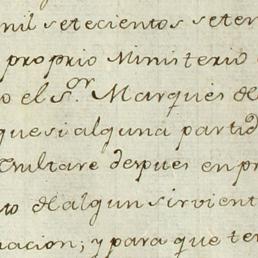 mil setecientos seten
proprio Ministerio
o el S.or Marqués de
que si alguna partid
resultare despues en pr
to de algun sirvient
nacion; y para que ten